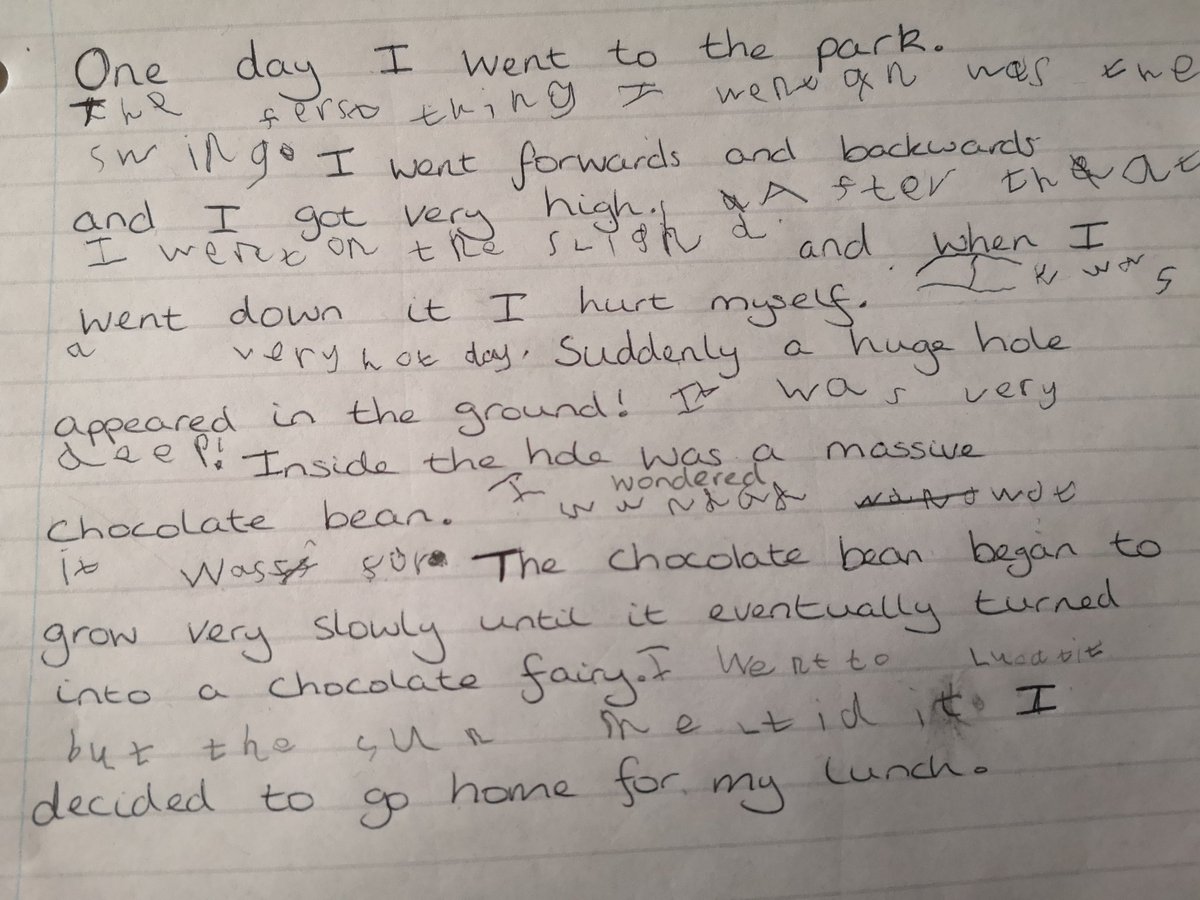 One day I went to the park.
the ferst thing I went on was the
swing. I went forwards and backwards
and I got very high. After that
I went on the and when I
went down it I hurt myself. It was
a very hot day. Suddenly a huge hole
appeared in the ground! It was very
deep! Inside the hole was a massive
wondered
chocolate bean. I wot
it was for The chocolate bean began to
grow very slowly until it eventually turned
into a chocolate fairy. I went to
but the sun meltid it. I
decided to go home for my lunch.